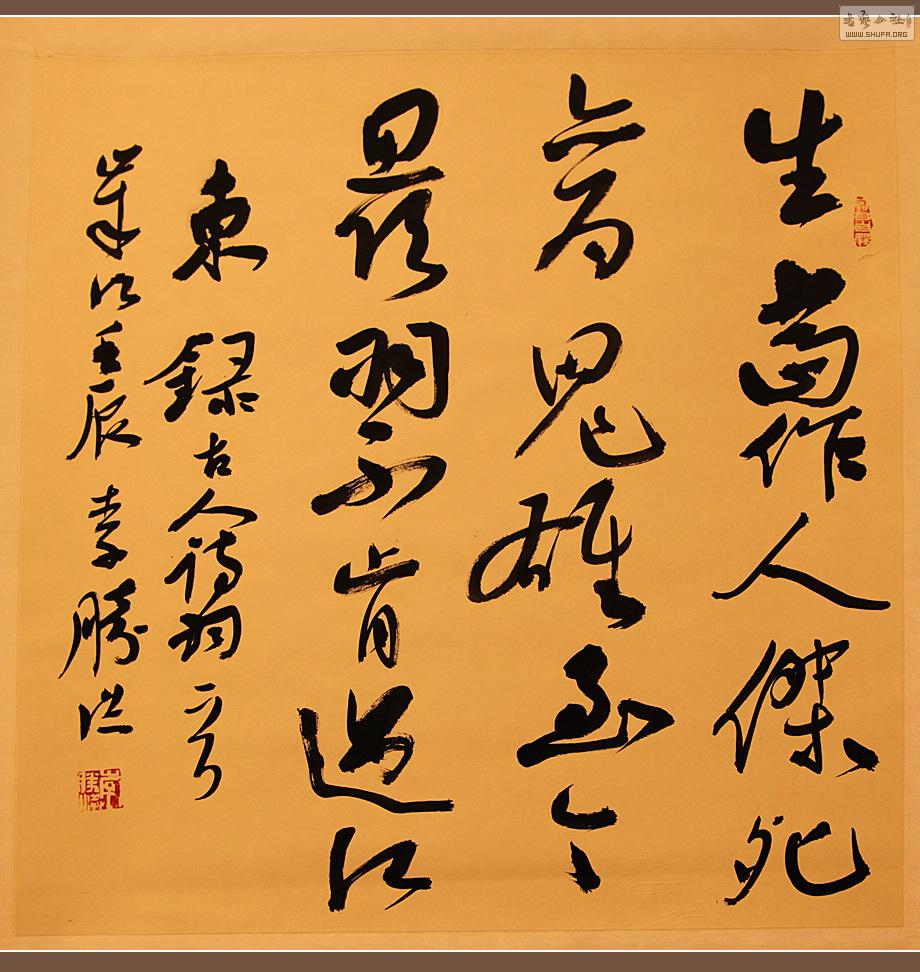 书艺公社
WWW.SHUFA.ORG
生當作人傑死
亦為鬼雄至今
思項羽不肯過江
東 錄古人詩詞一首
歲次壬辰 李勝洪